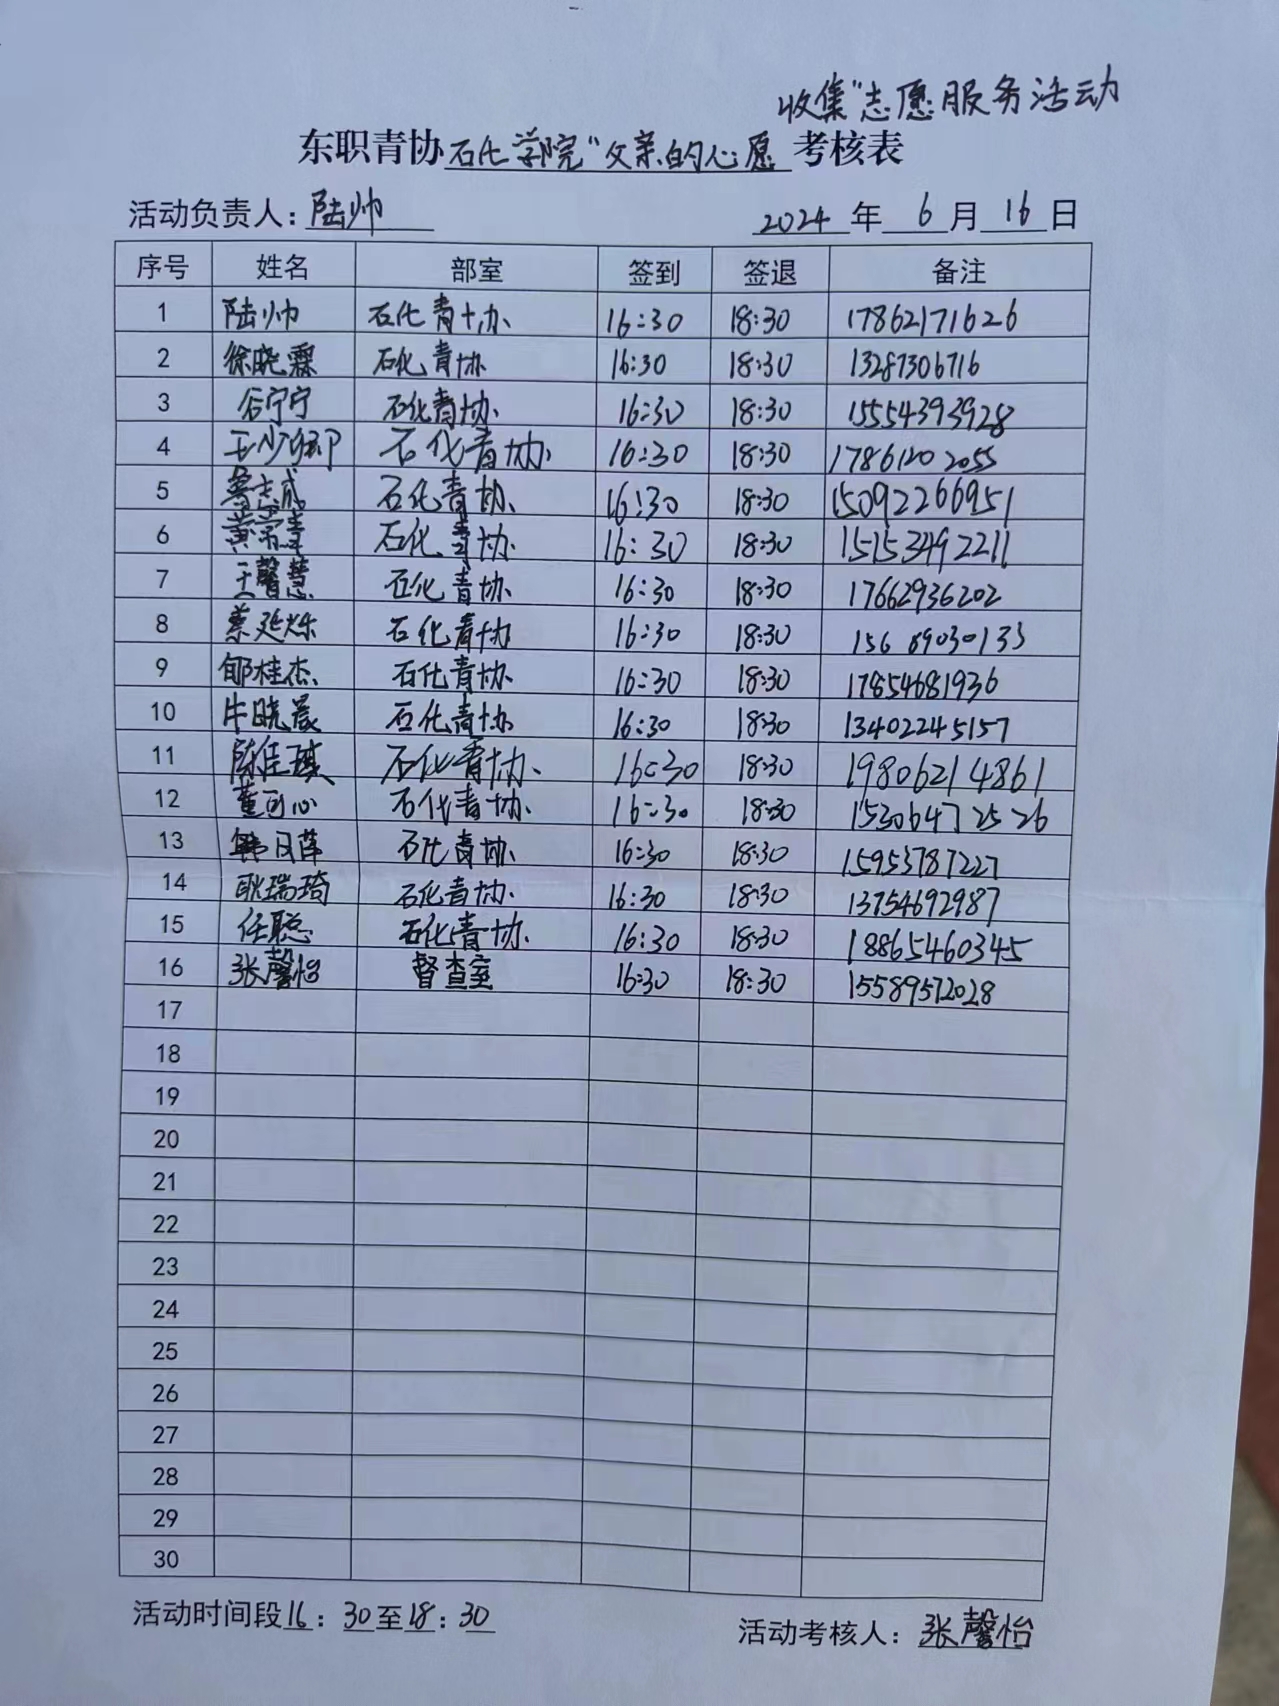 收集"志愿服务活动
东职青协石化学院"父亲的心愿 考核表
活动负责人: 陆帅 2024 年 6 月 16 日
序号 姓名 部室 签到 签退 备注
1 陆帅 石化青协 16:30 18:30 17862171626
2 徐晓霖 石化青协 16:30 18:30 13287306716
3 谷宁宁 石化青协 16:30 18:30 15554393928
4 王少卿 石化青协 16:30 18:30 17861202055
5 志成 石化青协 16:30 18:30 15092266951
6 黄 石化青协 16:30 18:30 15153492211
7 王馨慧 石化青协 16:30 18:30 17662936202
8 蔡延烁 石化青协 16:30 18:30 15689030133
9 郇桂杰 石化青协 16:30 18:30 17854681936
10 牛晓晨 石化青协 16:30 18:30 13402245157
11 陈佳琪 石化青协 16:30 18:30 19806214861
12 董可心 石化青协 16:30 18:30 15306472526
13 韩日萍 石化青协 16:30 18:30 15953787227
14 耿瑞琦 石化青协 16:30 18:30 13754692987
15 任聪 石化青协 16:30 18:30 18865460345
16 张馨怡 督查室 16:30 18:30 15589572028
17
18
19
20
21
22
23
24
25
26
27
28
29
30
活动时间段16:30至18:30 活动考核人: 张馨怡